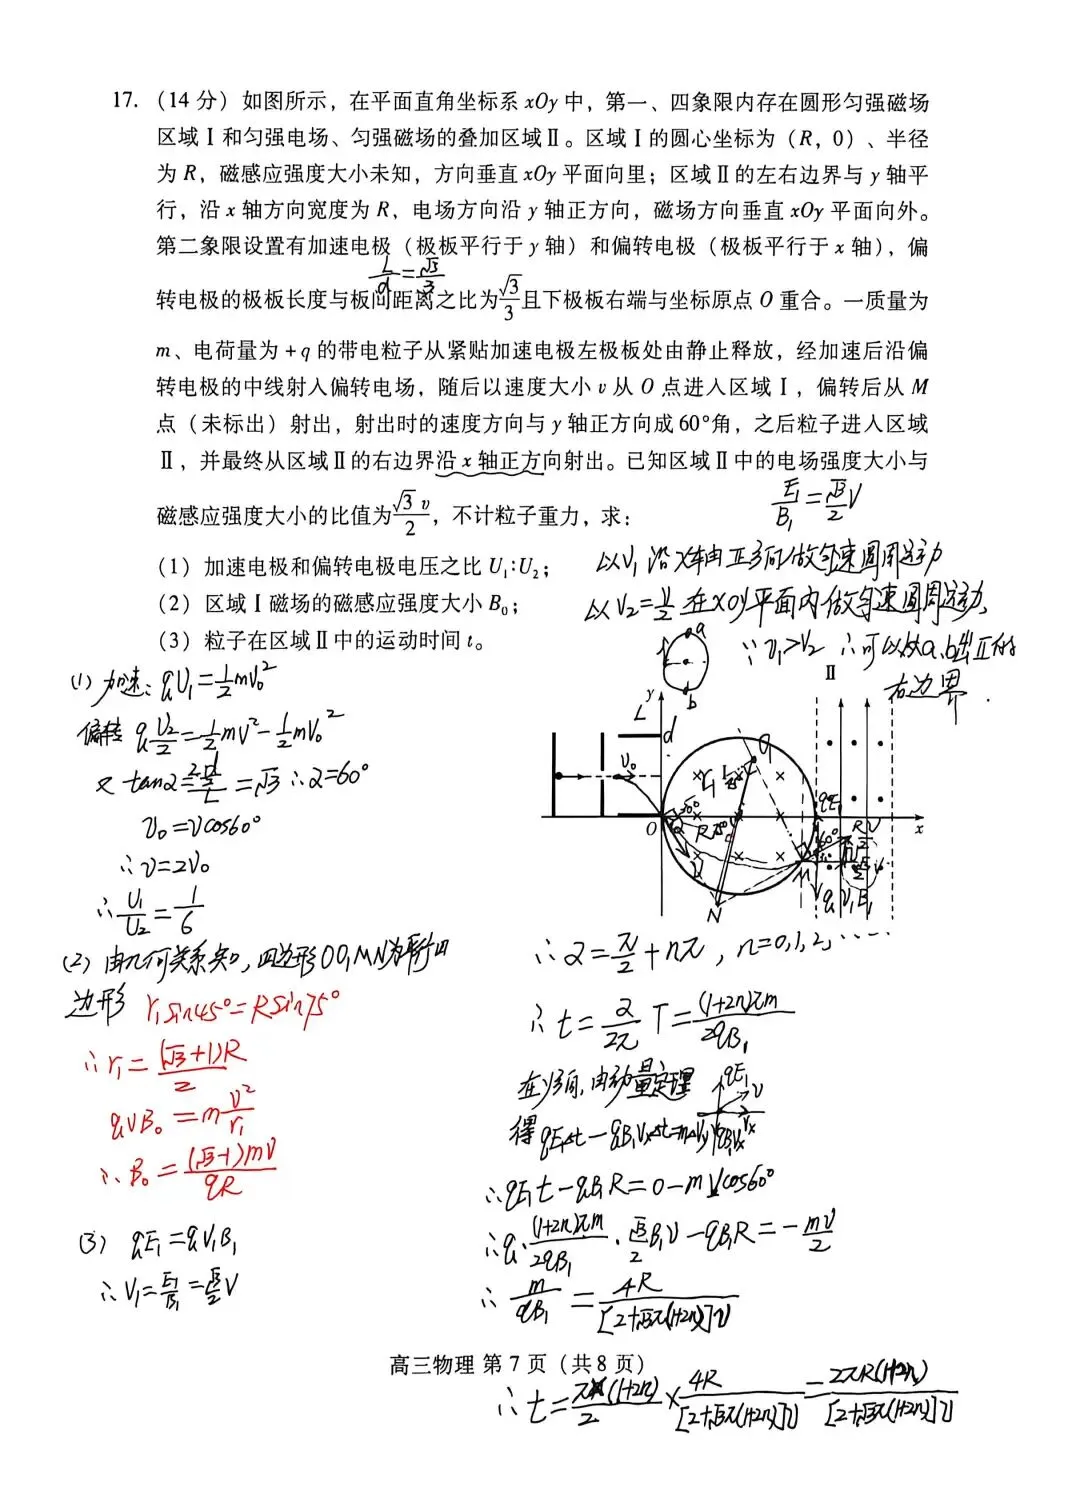 17.（14 分）如图所示，在平面直角坐标系 xOy 中，第一、四象限内存在圆形匀强磁场
区域Ⅰ和匀强电场、匀强磁场的叠加区域Ⅱ。区域Ⅰ的圆心坐标为（R，0）、半径
为 R，磁感应强度大小未知，方向垂直 xOy 平面向里；区域Ⅱ的左右边界与 y 轴平
行，沿 x 轴方向宽度为 R，电场方向沿 y 轴正方向，磁场方向垂直 xOy 平面向外。
第二象限设置有加速电极（极板平行于 y 轴）和偏转电极（极板平行于 x 轴），偏
L/d=√3/3
转电极的极板长度与板间距离之比为√3/3且下极板右端与坐标原点 O 重合。一质量为
m、电荷量为 +q 的带电粒子从紧贴加速电极左极板处由静止释放，经加速后沿偏
转电极的中线射入偏转电场，随后以速度大小 v 从 O 点进入区域Ⅰ，偏转后从 M
点（未标出）射出，射出时的速度方向与 y 轴正方向成 60°角，之后粒子进入区域
Ⅱ，并最终从区域Ⅱ的右边界沿 x 轴正方向射出。已知区域Ⅱ中的电场强度大小与
磁感应强度大小的比值为√3v/2，不计粒子重力，求：
E₁/B₁=√3/2V
（1）加速电极和偏转电极电压之比 U₁∶U₂；
以V₁沿X轴正方向做匀速圆周运动
（2）区域Ⅰ磁场的磁感应强度大小 B₀；
以V₂=V/2在xoy平面内做匀速圆周运动,
（3）粒子在区域Ⅱ中的运动时间 t。
∵v₁>V₂ ∴可以从a、b出Ⅱ的
右边界.
a
b
(1)加速：qU₁=½mV₀²
偏转 qU₂/2=½mV²-½mV₀²
∴α=60°
V₀=Vcos60°
∴v=2V₀
∴U₁/U₂=1/6
Ⅱ
y
L
d
V₀
O
x
M
N
(2)由几何关系知，四边形OO₁MN为平行四
边形 r₁sin45°=Rsin75°
∴r₁=(√3+1)R/2
qVB₀=mV²/r₁
∴B₀=(√3-1)mV/qR
(3) qE₁=qV₁B₁
∴V₁=E₁/B₁=√3/2V
∴α=π/2+nπ，n=0,1,2,……
∴t=α/2π T=(1+2n)πm/2qB₁
在y方向，由动量定理
得qE₁Δt-qB₁VxΔt=mΔVy
∴qE₁t-qB₁R=0-mVcos60°
∴q·(1+2n)πm/2qB₁·√3/2B₁V-qB₁R=-mV/2
∴m/qB₁=4R/[2+√3π(1+2n)]V
高三物理 第 7 页（共 8 页）
∴t=π(1+2n)/2×4R/[2+√3π(1+2n)]V=2πR(1+2n)/[2+√3π(1+2n)]V